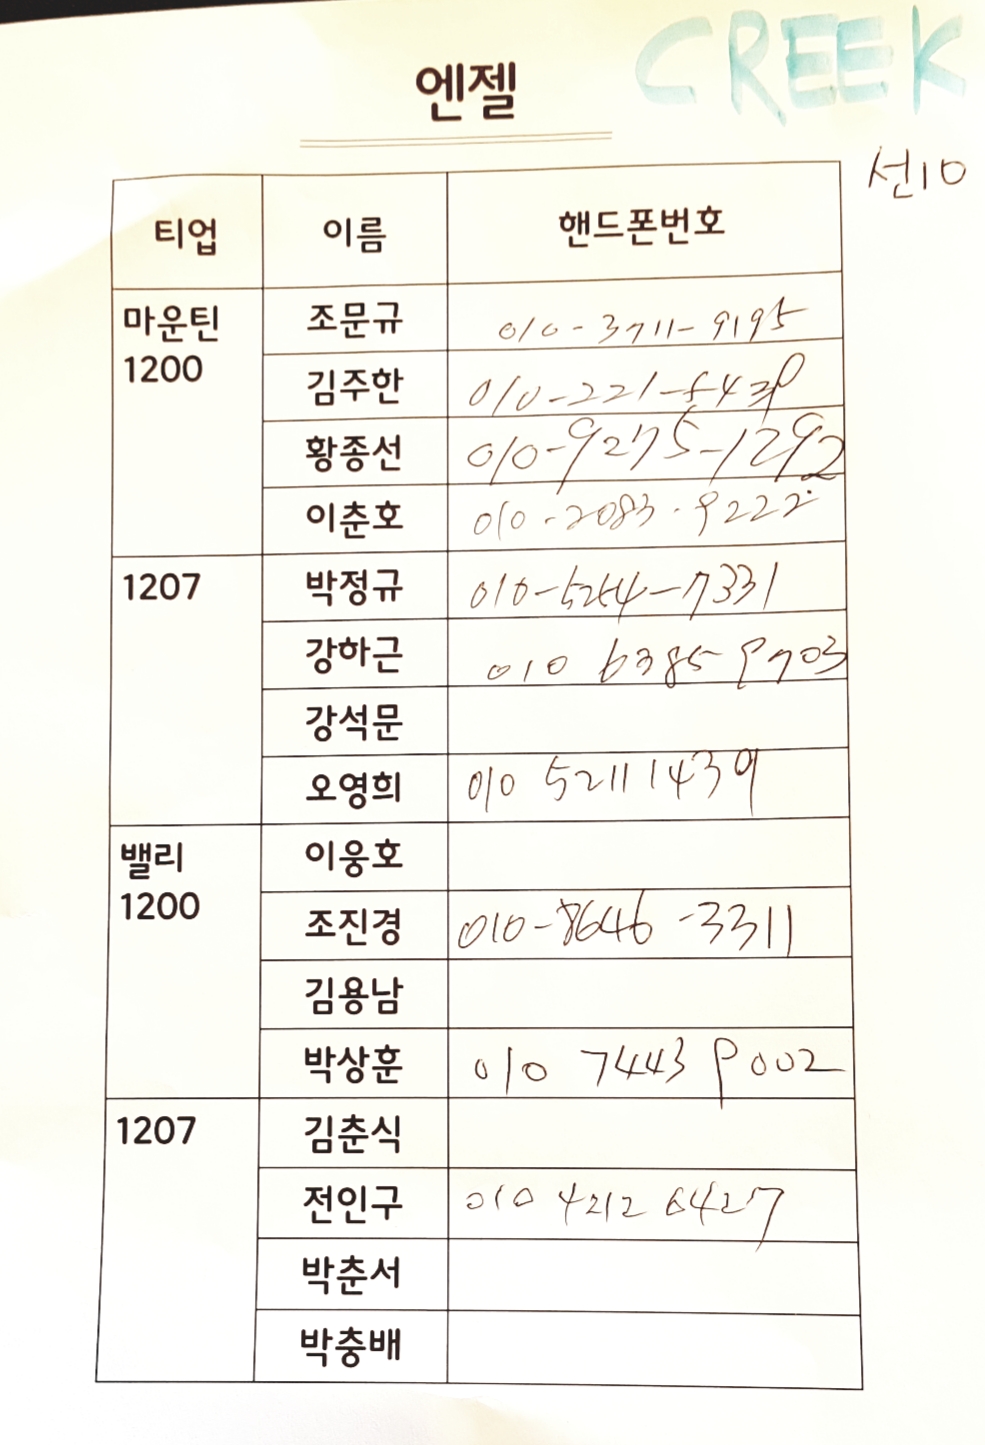 CREEK
엔젤
선10
티업 이름 핸드폰번호
마운틴 1200 조문규 010-3711-9195
김주한 010-221-5430
황종선 010-9275-1292
이춘호 010-2083-9222
1207 박정규 010-5254-7331
강하근 010 6385 9703
강석문
오영희 010 5211 1439
밸리 1200 이웅호
조진경 010-8646-3311
김용남
박상훈 010 7443 9002
1207 김춘식
전인구 010 4212 6427
박춘서
박충배